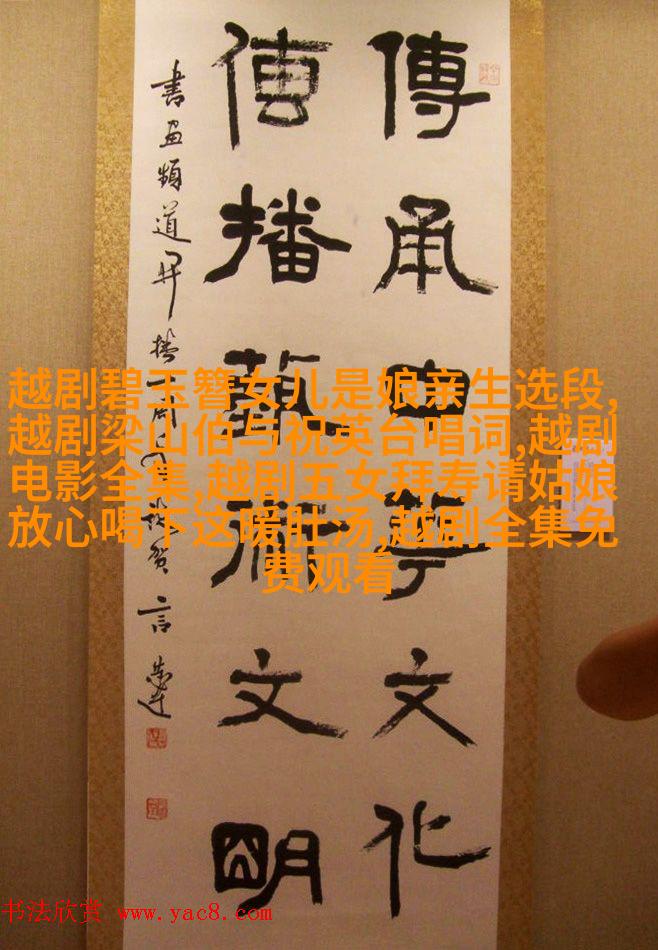 傳承中華文化
傳播藝術文明
書画頻道开播十周年誌賀 言恭達
越剧碧玉簪女儿是娘亲生选段,
越剧梁山伯与祝英台唱词,越剧
电影全集,越剧五女拜寿请姑娘
放心喝下这暖肚汤,越剧全集免
费观看
书法欣赏 www.yac8.com